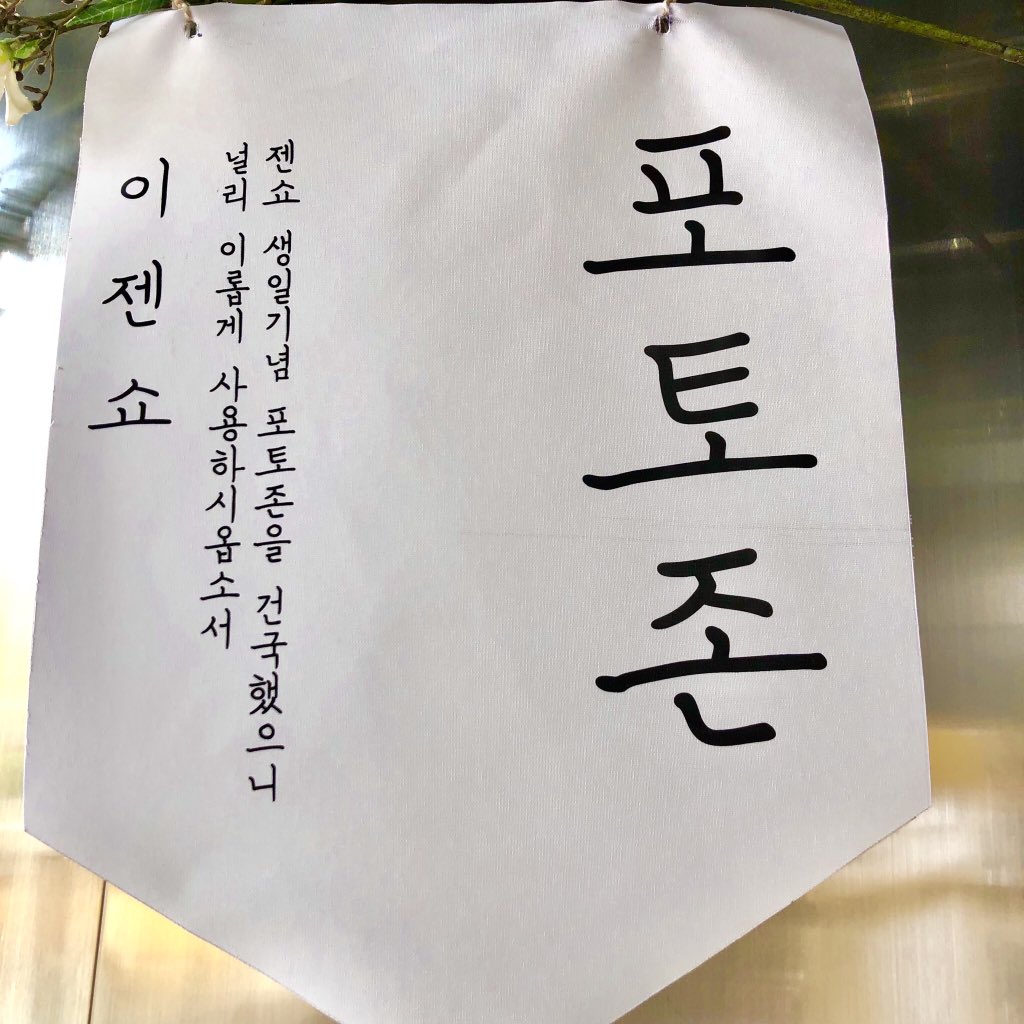 포토존
젠쇼 생일기념 포토존을 건국했으니
널리 이롭게 사용하시옵소서
이젠쇼